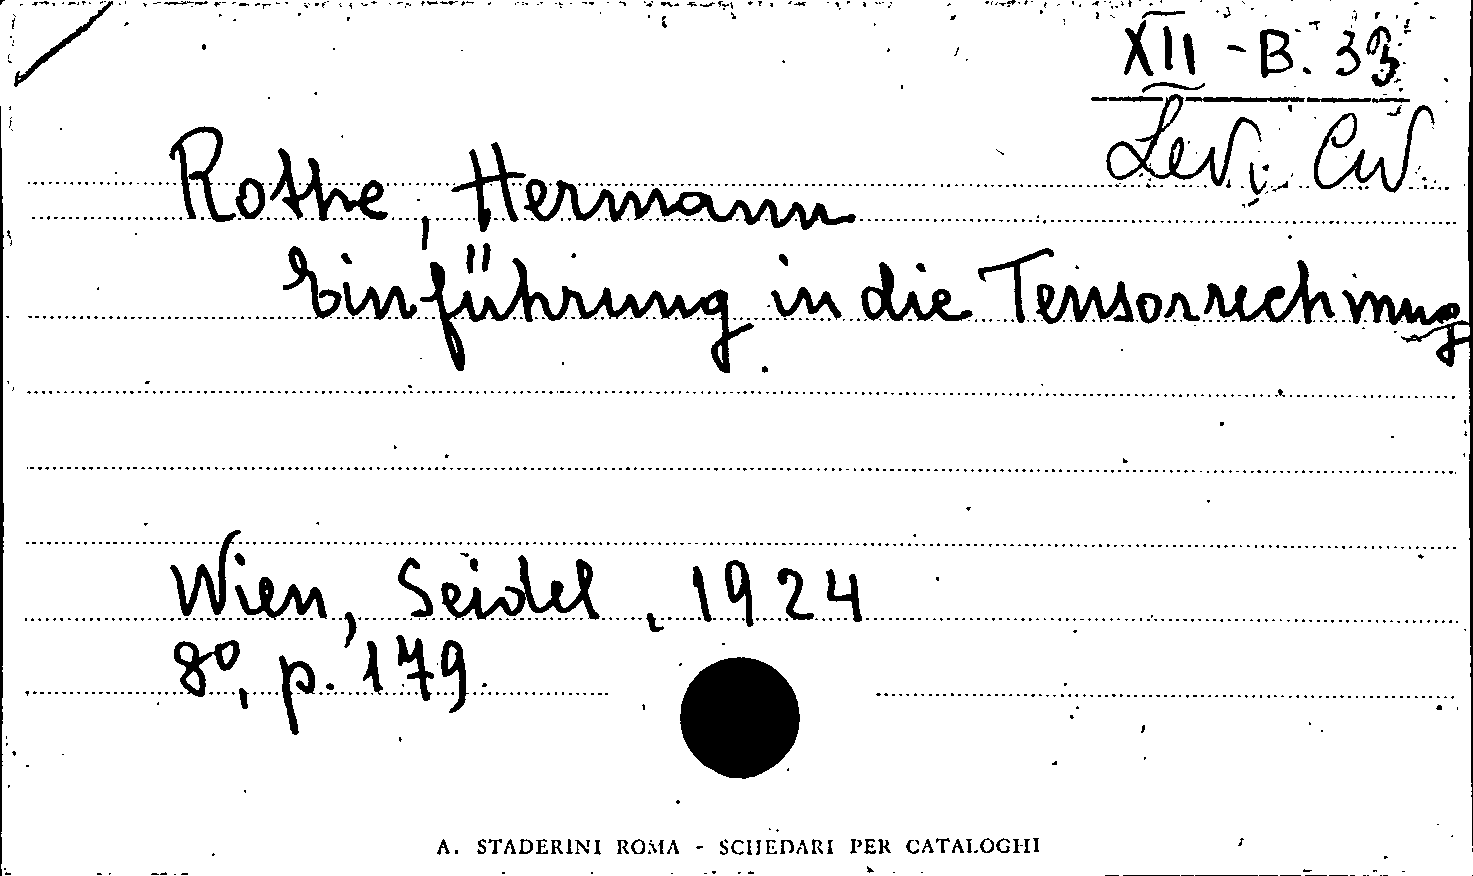 XII - B. 33
Levi Civ.
Rothe, Hermann
Einführung in die Tensorrechnung.
Wien, Seidel, 1924
8°, p. 179
A. STADERINI ROMA - SCHEDARI PER CATALOGHI